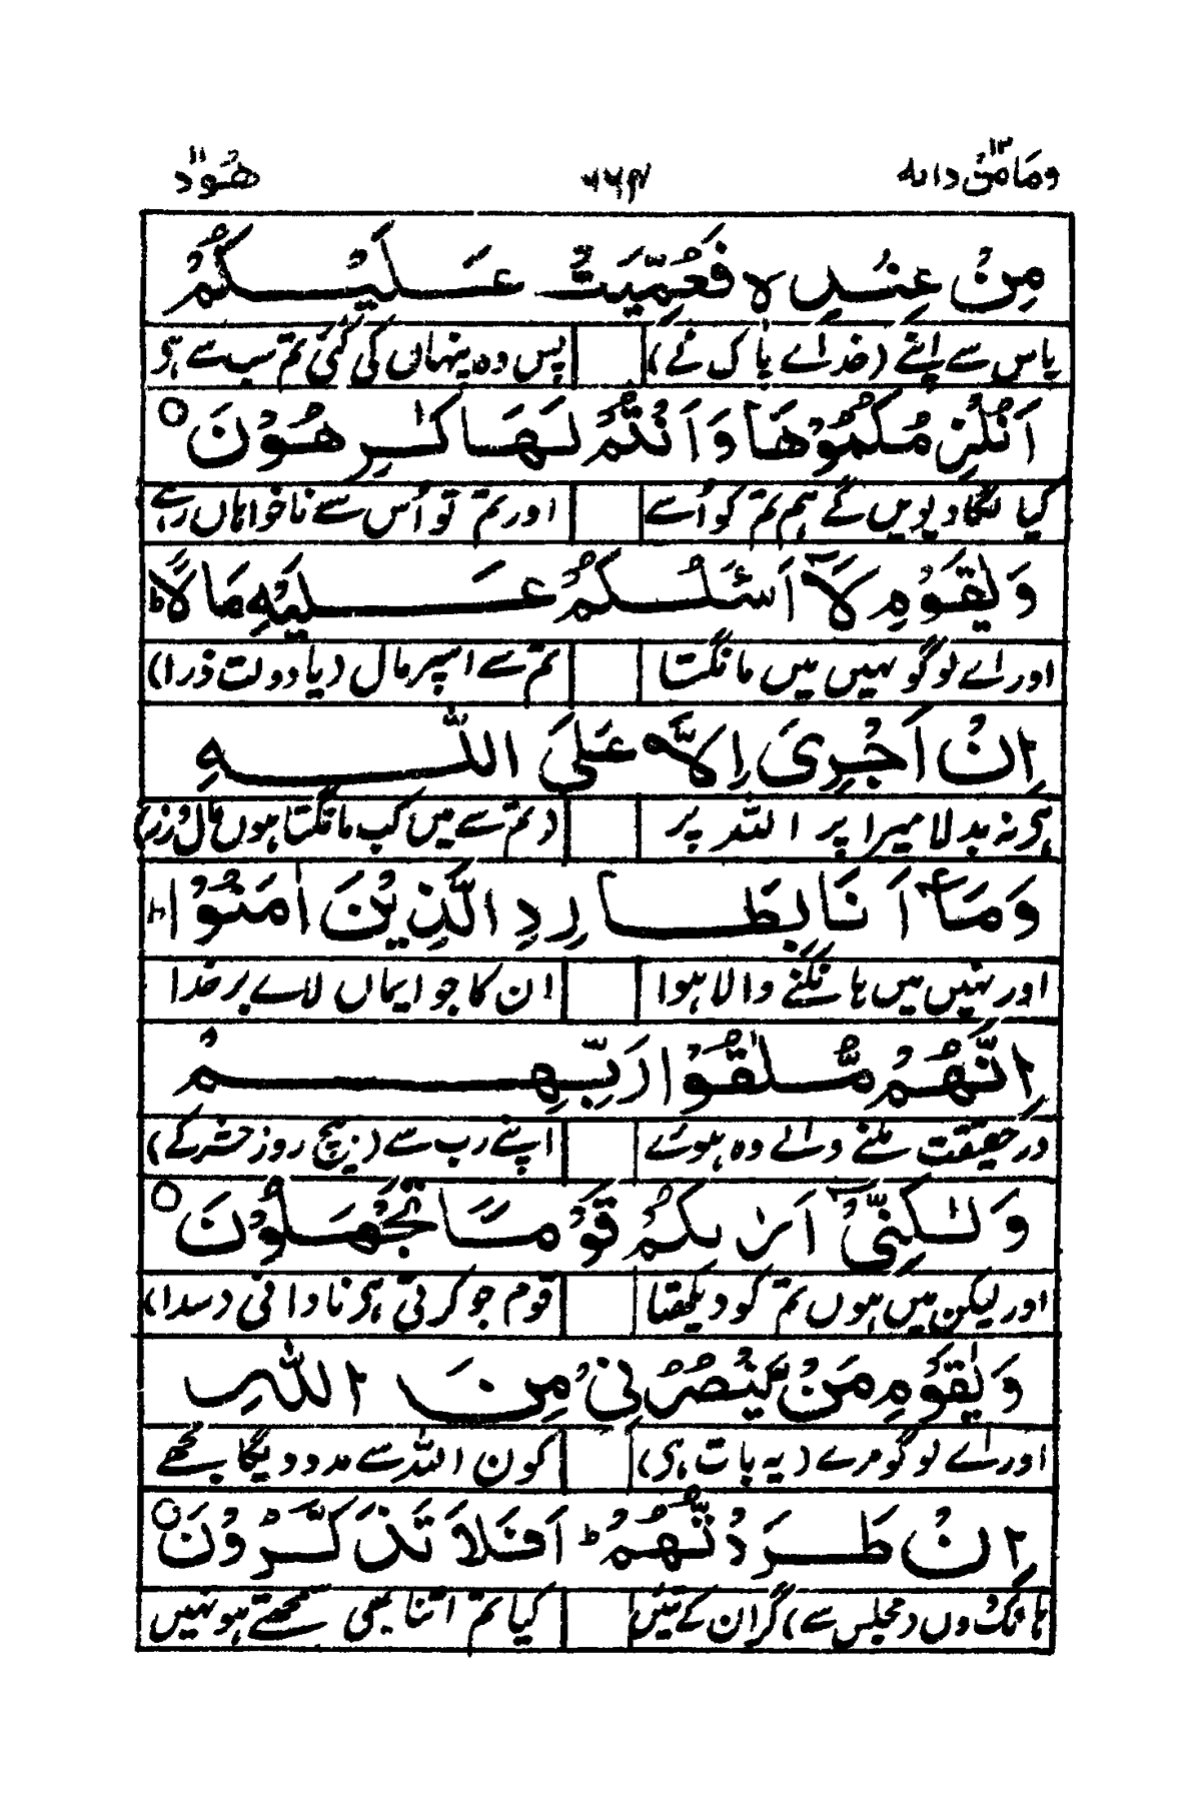 ومامن دابه ١٢ ٦٦٤ هود ١١
مِنْ عِنْدِهٖ فَعُمِّيَتْ عَلَيْكُمْ
پاس سے اپنے (خداے پاک نے) پس وہ پنہاں کی گئی تم سب سے ہر
اَنُلْزِمُكُمُوْهَا وَاَنْتُمْ لَهَا كٰرِهُوْنَ ○
کیا لگا دیویں گے ہم تم کو اُسے اور تم تو اُس سے ناخواہاں رہے
وَيٰقَوْمِ لَآ اَسْئَلُكُمْ عَلَيْهِ مَالًا ط
اور اے لوگو نہیں میں مانگتا تم سے اسپر مال (یا دولت ذرا)
اِنْ اَجْرِىَ اِلَّا عَلَى اللّٰهِ
ہر نہ بدلا میرا پر اللہ پر (تم سے میں کب مانگتا ہوں مال و زر)
وَمَآ اَنَا بِطَارِدِ الَّذِيْنَ اٰمَنُوْا ط
اور نہیں میں ہانکنے والا ہوا ان کا جو ایماں لاے بر خدا
اِنَّهُمْ مُّلٰقُوْا رَبِّهِمْ
در حقیقت ملنے والے وہ ہوے اپنے رب سے (بیچ روز حشر کے)
وَلٰكِنِّىْٓ اَرٰىكُمْ قَوْمًا تَجْهَلُوْنَ ○
اور لیکن میں ہوں تم کو دیکھتا قوم جو کرتی ہر نادانی (سدا)
وَيٰقَوْمِ مَنْ يَّنْصُرُنِىْ مِنَ اللّٰهِ
اور اے لوگو مرے (یہ بات ہی) کون اللہ سے مدد دیگا مجھے
اِنْ طَرَدْتُّهُمْ ط اَفَلَا تَذَكَّرُوْنَ ○
ہانک دوں (مجلس سے) گر ان کے تئیں کیا تم اتنا بھی سمجھتے ہو نہیں